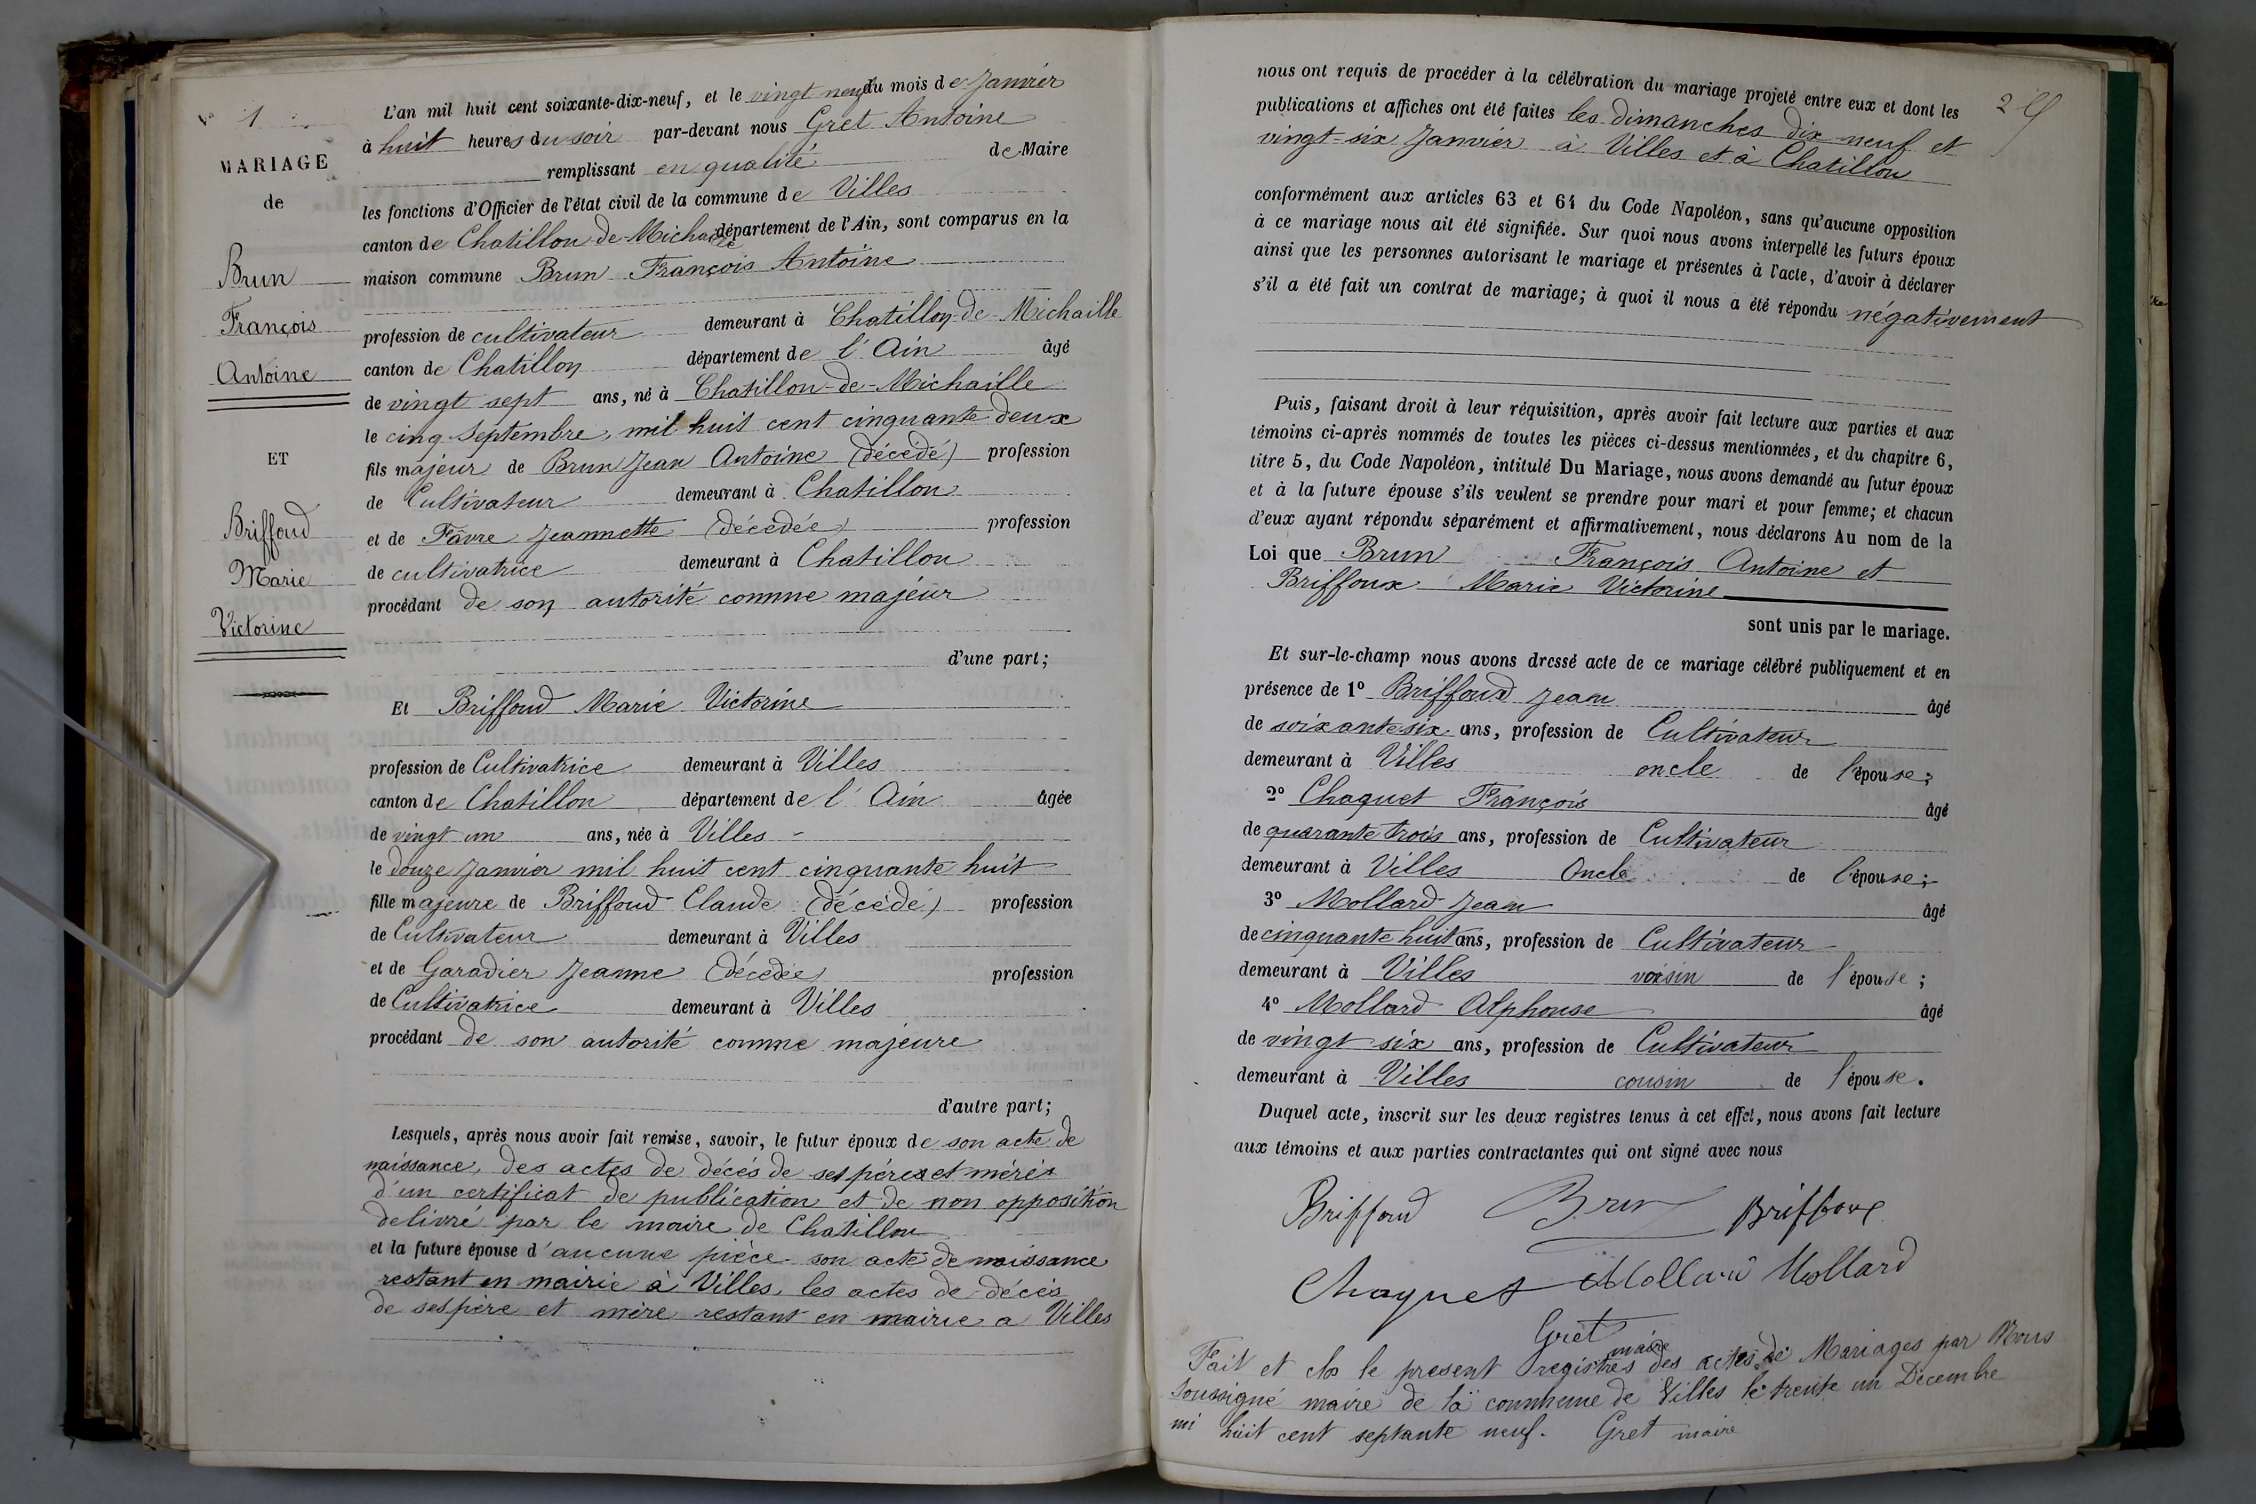 1
MARIAGE
de
Brun
François
Antoine
ET
Briffoud
Marie
Victorine
L'an mil huit cent soixante-dix-neuf, et le vingt neuf du mois de Janvier
à huit heures du soir par-devant nous Gret Antoine
remplissant en qualité de Maire
les fonctions d'Officier de l'état civil de la commune de Villes
canton de Chatillon de Michaille département de l'Ain, sont comparus en la
maison commune Brun François Antoine
profession de cultivateur demeurant à Chatillon-de-Michaille
canton de Chatillon département de l'Ain âgé
de vingt sept ans, né à Chatillon-de-Michaille
le cinq Septembre, mil huit cent cinquante deux
fils majeur de Brun Jean Antoine (décédé) profession
de Cultivateur demeurant à Chatillon
et de Favre Jeannette (décédée) profession
de cultivatrice demeurant à Chatillon
procédant de son autorité comme majeur
d'une part;
Et Briffoud Marie Victorine
profession de Cultivatrice demeurant à Villes
canton de Chatillon département de l'Ain âgée
de vingt un ans, née à Villes -
le douze Janvier mil huit cent cinquante huit
fille majeure de Briffoud Claude (décédé) profession
de Cultivateur demeurant à Villes
et de Garadier Jeanne (décédée) profession
de Cultivatrice demeurant à Villes
procédant de son autorité comme majeure
d'autre part;
Lesquels, après nous avoir fait remise, savoir, le futur époux de son acte de
naissance, des actes de décés de ses pères et mères
d'un certificat de publication et de non opposition
delivré par le maire de Chatillon
et la future épouse d'aucune pièce son acte de naissance
restant en mairie à Villes, les actes de décés
de ses père et mère restant en mairie a Villes
2
nous ont requis de procéder à la célébration du mariage projeté entre eux et dont les
publications et affiches ont été faites les dimanches dix neuf et
vingt-six Janvier à Villes et à Chatillon
conformément aux articles 63 et 64 du Code Napoléon, sans qu'aucune opposition
à ce mariage nous ait été signifiée. Sur quoi nous avons interpellé les futurs époux
ainsi que les personnes autorisant le mariage et présentes à l'acte, d'avoir à déclarer
s'il a été fait un contrat de mariage; à quoi il nous a été répondu négativement
Puis, faisant droit à leur réquisition, après avoir fait lecture aux parties et aux
témoins ci-après nommés de toutes les pièces ci-dessus mentionnées, et du chapitre 6,
titre 5, du Code Napoléon, intitulé Du Mariage, nous avons demandé au futur époux
et à la future épouse s'ils veulent se prendre pour mari et pour femme; et chacun
d'eux ayant répondu séparément et affirmativement, nous déclarons Au nom de la
Loi que Brun François Antoine et
Briffoux Marie Victorine
sont unis par le mariage.
Et sur-le-champ nous avons dressé acte de ce mariage célébré publiquement et en
présence de 1º Briffoud Jean âgé
de soixante six ans, profession de Cultivateur
demeurant à Villes oncle de l'épouse;
2º Chaquet François âgé
de quarante trois ans, profession de Cultivateur
demeurant à Villes Oncle de l'épouse;
3º Mollard Jean âgé
de cinquante huit ans, profession de Cultivateur
demeurant à Villes voisin de l'épouse;
4º Mollard Alphonse âgé
de vingt six ans, profession de Cultivateur
demeurant à Villes cousin de l'épouse.
Duquel acte, inscrit sur les deux registres tenus à cet effet, nous avons fait lecture
aux témoins et aux parties contractantes qui ont signé avec nous
Briffoud Brun Briffoux
Chaquet Mollard Mollard
Gret
maire
Fait et clos le present registres des actes de Mariages par Nous
soussigné maire de la commune de Villes le trente un Decembre
mi huit cent septante neuf. Gret maire